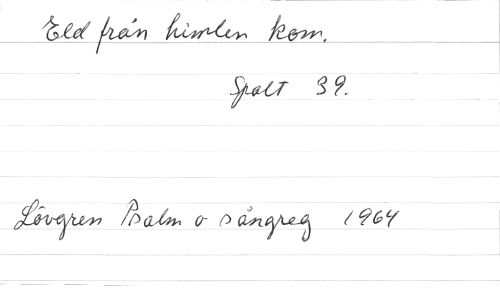 Eld från himlen kom.
Spalt 39.
Lövgren Psalm o sångreg 1964